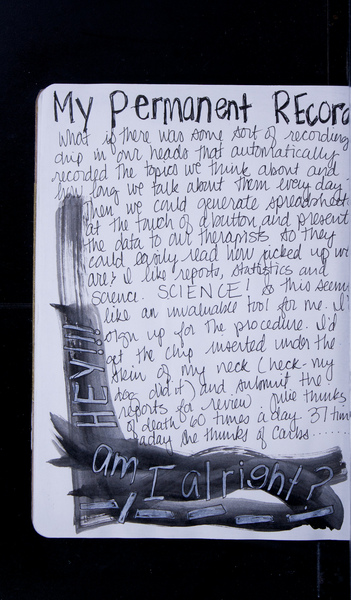 My Permanent Recor
What if there was some sort of recording
chip in our heads that automatically
recorded the topics we think about and
how long we talk about them every day.
Then we could generate spreadsheets
at the touch of a button and present
the data to our therapists so they
could easily read how picked up we
are? I like reports, statistics and
science. SCIENCE! so this seems
like an invaluable tool for me. I'd
sign up for the procedure. I'd
get the chip inserted under the
skin of my neck (heck my
dog did it) and submit the
reports for review. Julie thinks
of death 60 times a day. 37 times
a day she thinks of carbs......
HEY!!!
am I alright?